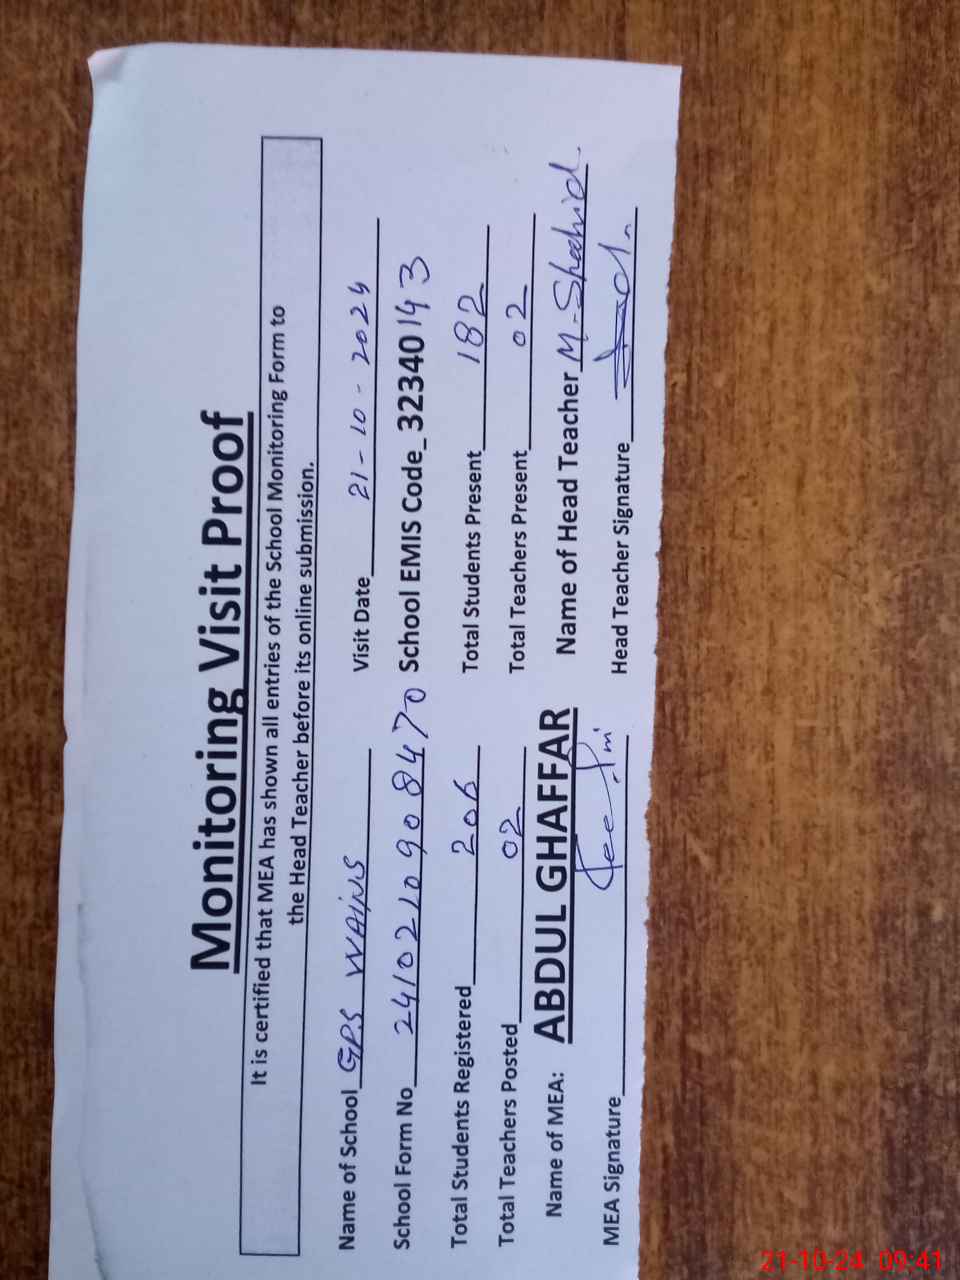 Monitoring Visit Proof
It is certified that MEA has shown all entries of the School Monitoring Form to
the Head Teacher before its online submission.
Name of School GPS WAINS Visit Date 21-10-2024
School Form No 2410210908470 School EMIS Code_32340143
Total Students Registered 206 Total Students Present 182
Total Teachers Posted 02 Total Teachers Present 02
Name of MEA: ABDUL GHAFFAR Name of Head Teacher M-Shahid.
MEA Signature Head Teacher Signature
21-10-24 09:41